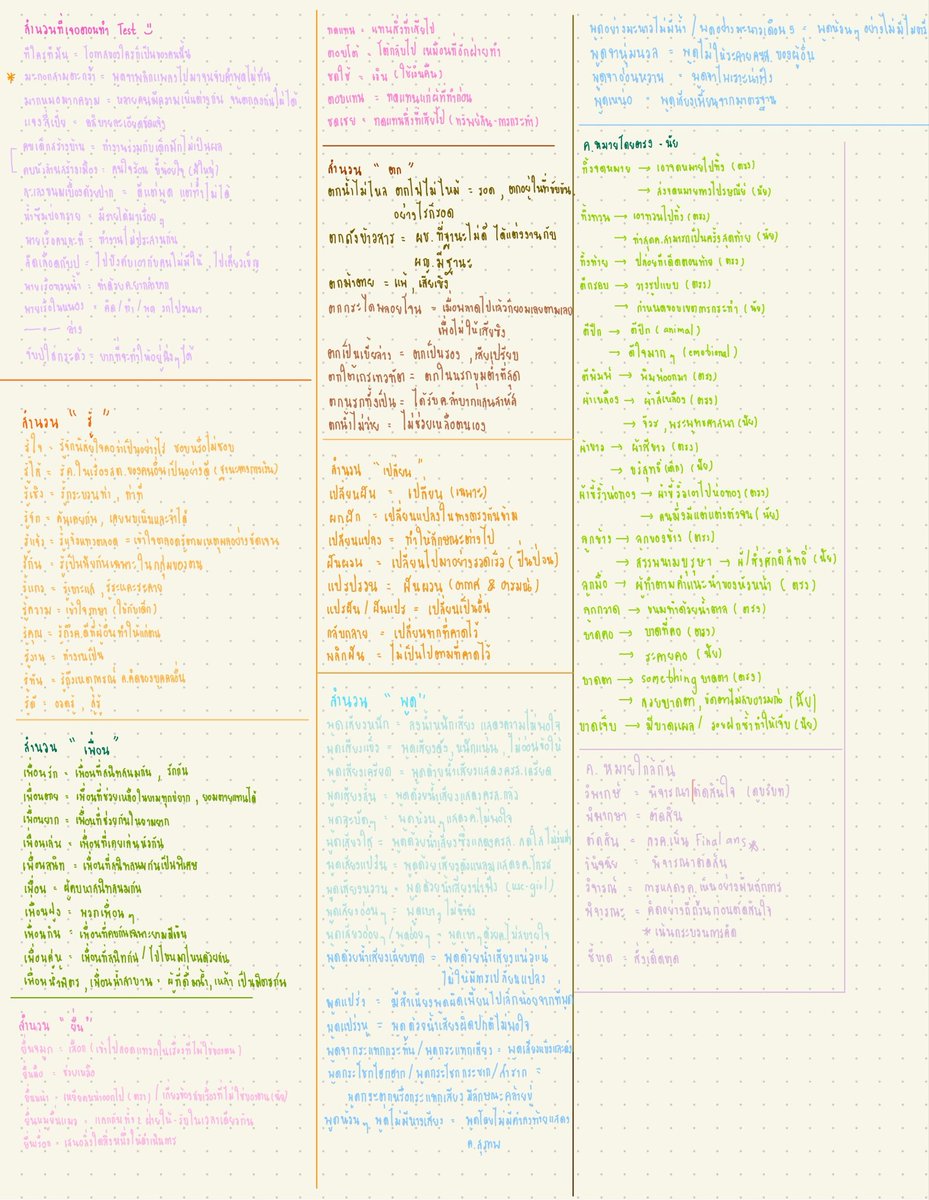 สำนวนที่เจอตอนทำ Test
ทีใครทีมัน = โอกาสของใครก็เป็นของคนนั้น
* มะกอกสามตะกร้า = พูดจาพลิกแพลงไปมาจนจับคำพูดไม่ทัน
มากหมอมากความ = หลายคนมีความเห็นต่างกัน จนตกลงกันไม่ได้
แจงสี่เบี้ย = อธิบายละเอียดชัดแจ้ง
คบเด็กสร้างบ้าน = ทำงานร่วมกับเด็กมักไม่เป็นผล
คบหัวล้านสร้างเมือง = คนใจร้อน ขี้น้อยใจ (ผู้ใหญ่)
ละเลงขนมเบื้องด้วยปาก = ดีแต่พูด แต่ทำไม่ได้
น้ำซึมบ่อทราย = มีรายได้มาเรื่อยๆ
พายเรือคนละที = ทำงานไม่ประสานกัน
พายเรือทวนน้ำ = ทำด้วยค.ยากลำบาก
พายเรือในหนอง = คิด / ทำ / พูด วกไปวนมา
จับปูใส่กระด้ง = ยากที่จะทำให้อยู่นิ่งๆ ได้
สำนวน " รู้ "
รู้ใจ = รู้จักนิสัยใจคอว่าเป็นอย่างไร ชอบหรือไม่ชอบ
รู้ไส้ = รู้ค.ในเรื่องสต.ของคนอื่นเป็นอย่างดี (ฐานะทางการเงิน)
รู้เชิง = รู้กระบวนท่า , ท่าที
รู้จัก = คุ้นเคยกัน , เคยพบเห็นและจำได้
รู้แจ้ง = รู้แจ้งแทงตลอด = เข้าใจตลอดรู้ตามเหตุผลอย่างชัดเจน
รู้กัน = รู้เป็นนัยกันเฉพาะในกลุ่มของตน
รู้แกว = รู้เบาะแส , รู้ระแคะระคาย
รู้ความ = เข้าใจภาษา (ใช้กับเด็ก)
รู้คุณ = รู้ถึงค.ดีที่ผู้อื่นทำให้แก่ตน
รู้งาน = ทำงานเป็น
รู้ทัน = รู้ถึงเหตุการณ์ ค.คิดของบุคคลอื่น
รู้ดี = อวดรู้ , สู่รู้
สำนวน " เพื่อน "
เพื่อนรัก = เพื่อนที่สนิทสนมกัน , รักกัน
เพื่อนตาย = เพื่อนที่ช่วยเหลือในยามทุกข์ยาก , ยอมตายแทนได้
เพื่อนยาก = เพื่อนที่ช่วยกันในยามยาก
เพื่อนเล่น = เพื่อนที่เคยเล่นหัวกัน
เพื่อนสนิท = เพื่อนที่สนิทสนมกันเป็นพิเศษ
เพื่อน = ผู้คบหาสนิทสนมกัน
เพื่อนฝูง = พวกเพื่อนๆ
เพื่อนกิน = เพื่อนที่คบกันเฉพาะยามมีเงิน
เพื่อนคู่หู = เพื่อนที่สนิทกัน / ไปไหนมาไหนด้วยกัน
เพื่อนน้ำมิตร , เพื่อนน้ำสาบาน = ผู้ที่ดื่มน้ำ,เหล้า เป็นมิตรกัน
สำนวน " ยื่น "
ยื่นจมูก = เสือก (เข้าไปสอดแทรกในเรื่องที่ไม่ใช่ของตน)
ยื่นมือ = ช่วยเหลือ
ยื่นหน้า = เหยียดหน้าออกไป (ตรง) / เกี่ยวข้องในเรื่องที่ไม่ใช่ของตน (นัย)
ยื่นหมูยื่นแมว = แลกกันทั้ง 2 ฝ่ายให้-รับในเวลาเดียวกัน
ทดแทน = แทนสิ่งที่เสียไป
ตอบโต้ = โต้กลับไป เหมือนที่อีกฝ่ายทำ
ชดใช้ = เงิน (ใช้เงินคืน)
ตอบแทน = ทดแทนแก่ผู้ที่ทำก่อน
ชดเชย = ทดแทนสิ่งที่เสียไป (ทรัพย์สิน-การกระทำ)
สำนวน " ตก "
ตกน้ำไม่ไหล ตกไฟไม่ไหม้ = รอด , ตกอยู่ในที่คับขัน
อย่างไรก็รอด
ตกถังข้าวสาร = ผช. ที่ฐานะไม่ดี ได้แต่งงานกับ
ผญ. มีฐานะ
ตกม้าตาย = แพ้ , เสียเชิง
ตกกระไดพลอยโจน = เมื่อพลาดไปแล้วก็ยอมเลยตามเลย
เพื่อไม่ให้เสียเชิง
ตกเป็นเบี้ยล่าง = ตกเป็นรอง , เสียเปรียบ
ตกใต้เถรเทวทัต = ตกในนรกขุมต่ำที่สุด
ตกนรกทั้งเป็น = ได้รับค.ลำบากแสนสาหัส
ตกน้ำไม่ว่าย = ไม่ช่วยเหลือตนเอง
สำนวน " เปลี่ยน "
เปลี่ยนผัน = เปลี่ยน (เฉพาะ)
ผกผัก = เปลี่ยนแปลงในทางตรงกันข้าม
เปลี่ยนแปลง = ทำให้ลักษณะต่างไป
ผันผวน = เปลี่ยนไปมาอย่างรวดเร็ว (ปั่นป่วน)
แปรปรวน = ผันผวน (อากาศ & อารมณ์)
แปรผัน / ผันแปร = เปลี่ยนเป็นอื่น
กลับกลาย = เปลี่ยนจากที่คาดไว้
พลิกผัน = ไม่เป็นไปตามที่คาดไว้
สำนวน " พูด "
พูดเสียงหนัก = ลงน้ำหนักเสียง แสดงความไม่พอใจ
พูดเสียงแข็ง = พูดเสียงดัง, หนักแน่น , ไม่อ่อนข้อให้
พูดเสียงเครียด = พูดด้วยน้ำเสียงแสดงครส.เครียด
พูดเสียงสั่น = พูดด้วยน้ำเสียงแสดงครส.กลัว
พูดสะบัดๆ = พูดห้วนๆ แสดงค.ไม่พอใจ
พูดเสียงหวาน = พูดด้วยน้ำเสียงน่าฟัง
พูดเสียงอ่อนๆ = พูดเบาๆ ไม่จริงจัง
พูดด้วยน้ำเสียงเฉียบขาด = พูดด้วยน้ำเสียงแน่วแน่
ไม่ให้มีการเปลี่ยนแปลง
พูดแปร่ง = มีสำเนียงพูดผิดเพี้ยนไปเล็กน้อยจากที่พูด
พูดแปร่งหู = พูดด้วยน้ำเสียงผิดปกติไม่พอใจ
พูดจากระแทกกระทั้น / พูดกระแทกเสียง = พูดเสียงแข็งและดัง
พูดกระโชกโฮกฮาก / พูดกระโชกกระชาก / สำราก =
พูดกระตุกหรือกระแทกเสียง มีลักษณะคล้ายขู่
พูดห้วนๆ พูดไม่มีหางเสียง = พูดโดยไม่มีคำลงท้ายแสดง
ค.สุภาพ
พูดอย่างมะนาวไม่มีน้ำ / พูดอย่างมะนาวเดือน 5 = พูดห้วนๆ อย่างไม่มีไมตรี
พูดจานุ่มนวล = พูดไม่ให้ระคายครส. ของผู้อื่น
พูดจาอ่อนหวาน = พูดจาไพเราะน่าฟัง
พูดเหน่อ = พูดเสียงเพี้ยนจากมาตรฐาน
ค.หมายโดยตรง - นัย
ทิ้งจดหมาย → เอาจดหมายไปทิ้ง (ตรง)
→ ส่งจดหมายทางไปรษณีย์ (นัย)
ทิ้งทวน → เอาทวนไปทิ้ง (ตรง)
→ ทำสุดค.สามารถเป็นครั้งสุดท้าย (นัย)
ทิ้งท้าย → ปล่อยทีเด็ดตอนท้าย (ตรง)
ตีกรอบ → วางรูปแบบ (ตรง)
→ กำหนดขอบเขตการกระทำ (นัย)
ตีปีก → ตีปีก (animal)
→ ดีใจมากๆ (emotional)
ตีพิมพ์ → พิมพ์ออกมา (ตรง)
ผ้าเหลือง → ผ้าสีเหลือง (ตรง)
→ จีวร , พระพุทธศาสนา (นัย)
ผ้าขาว → ผ้าสีขาว (ตรง)
→ บริสุทธิ์ (เด็ก) (นัย)
ผ้าขี้ริ้วห่อทอง → ผ้าขี้ริ้วเอาไปห่อทอง (ตรง)
→ คนมั่งมีแต่แต่งตัวจน (นัย)
ลูกช้าง → ลูกของช้าง (ตรง)
→ สรรพนามบุรุษ 1 → ผี / สิ่งศักดิ์สิทธิ์ (นัย)
ลูกมือ → ผู้ทำตามคำแนะนำของหัวหน้า (ตรง)
ลูกกวาด → ขนมทำด้วยน้ำตาล (ตรง)
บาดคอ → บาดที่คอ (ตรง)
→ ระคายคอ (นัย)
บาดตา → something บาดตา (ตรง)
บาดเจ็บ → มีบาดแผล / รอยฟกช้ำทำให้เจ็บ (นัย)
ค. หมายใกล้กัน
วิพากษ์ = พิจารณาตัดสินใจ (ดูบริบท)
พิพากษา = ตัดสิน
ตัดสิน = ลงค.เห็น Final ans *
วินิจฉัย = พิจารณาตัดสิน
วิจารณ์ = การแสดงค.เห็นอย่างมีหลักการ
พิจารณะ = คิดอย่างถี่ถ้วนก่อนตัดสินใจ
* เน้นกระบวนการคิด
ชี้ขาด = สั่งเด็ดขาด